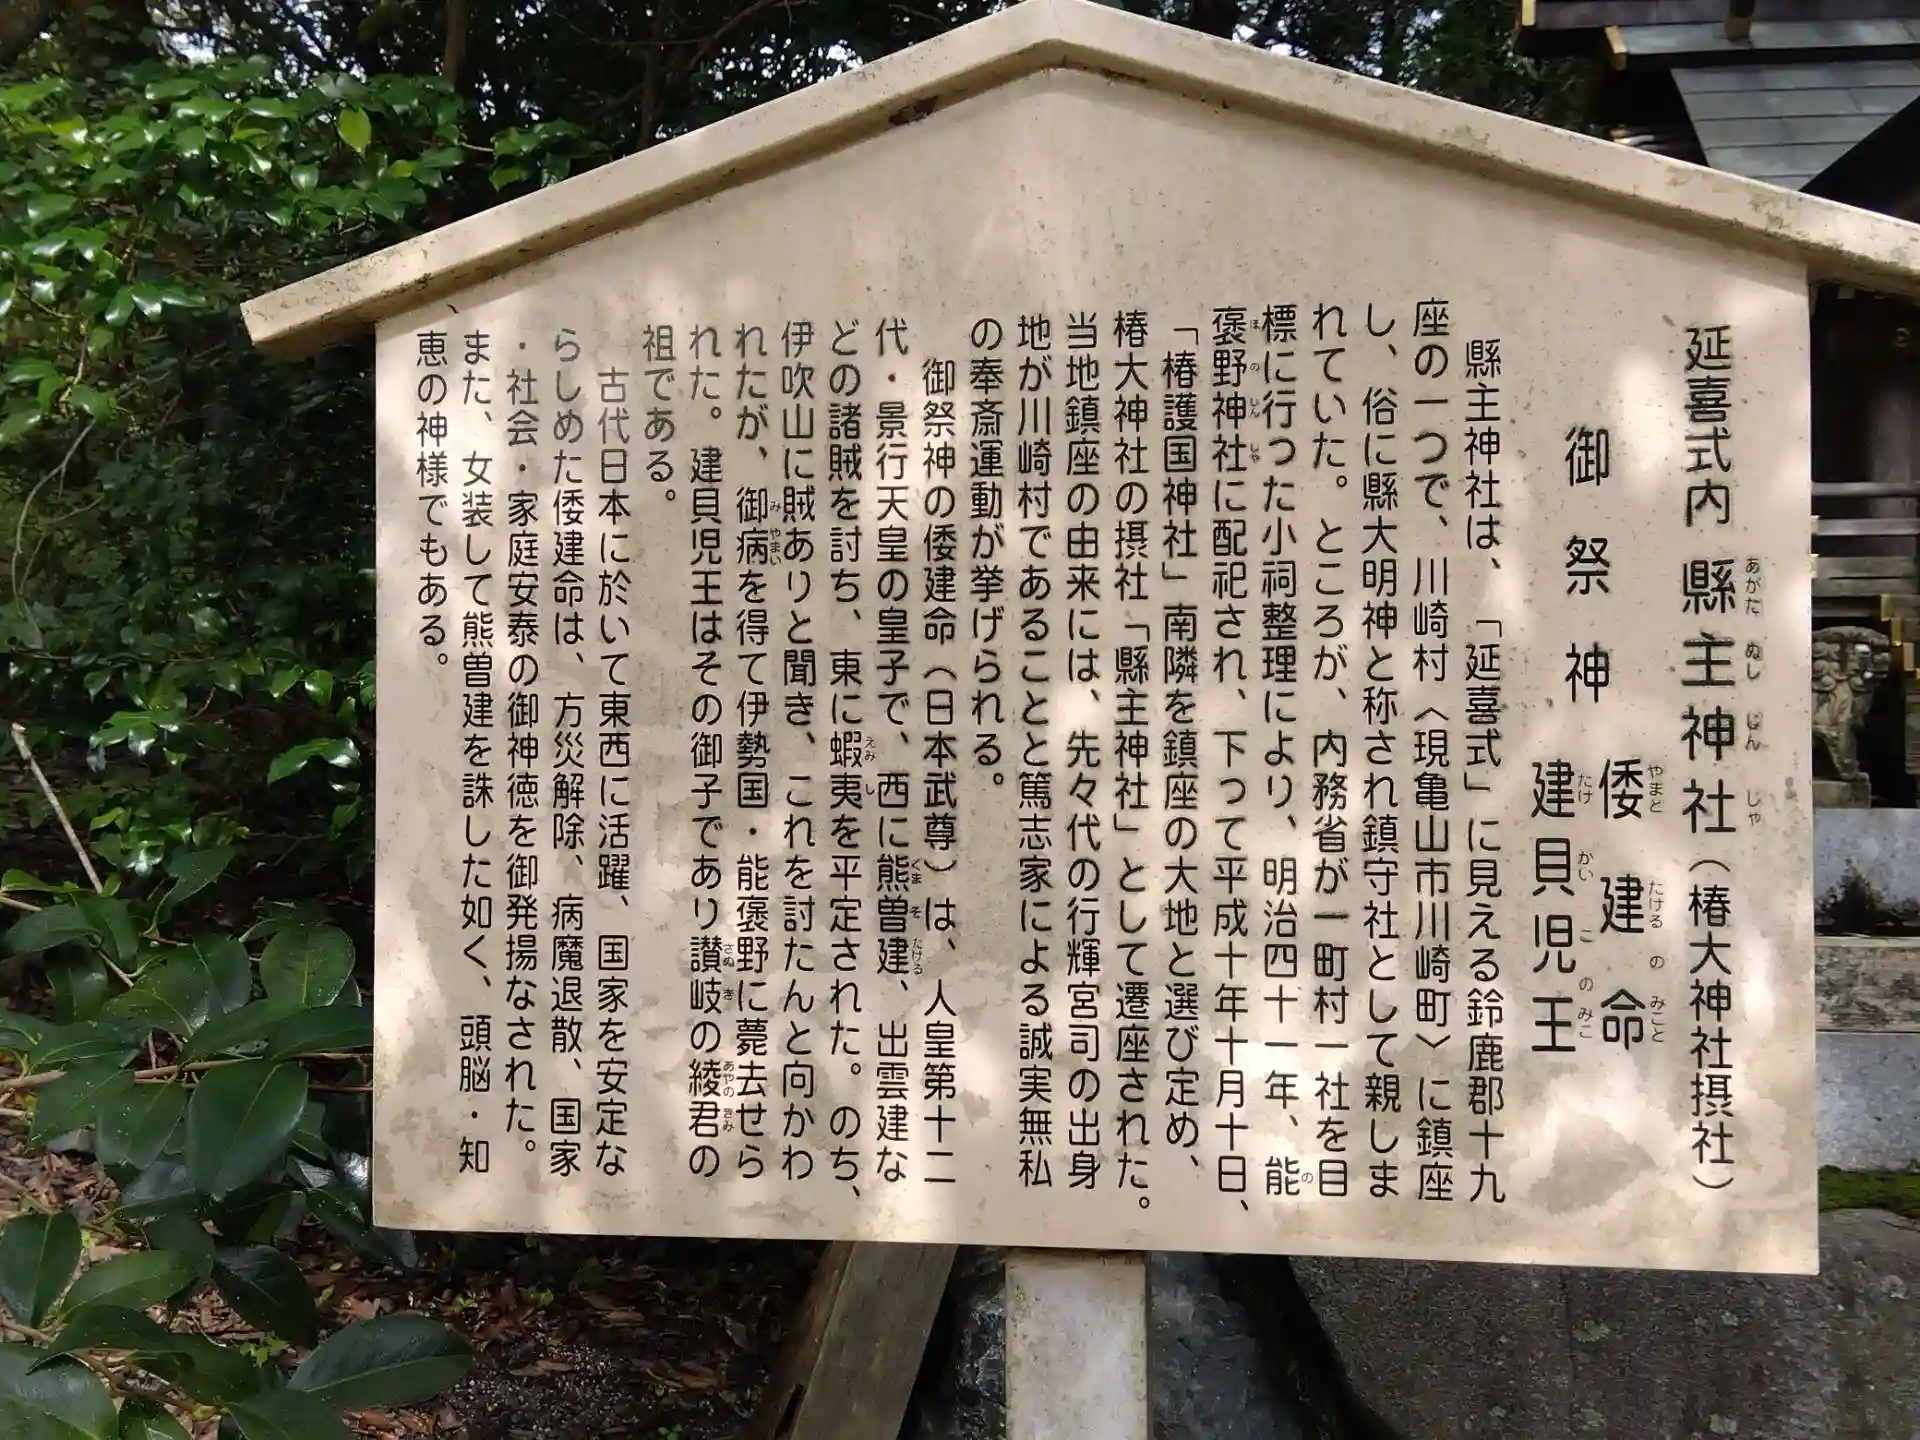 延喜式内 縣主神社（椿大神社摂社）
御祭神 倭建命
建貝児王
縣主神社は、「延喜式」に見える鈴鹿郡十九
座の一つで、川崎村〈現亀山市川崎町〉に鎮座
し、俗に縣大明神と称され鎮守社として親しま
れていた。ところが、内務省が一町村一社を目
標に行つた小祠整理により、明治四十一年、能
褒野神社に配祀され、下って平成十年十月十日、
「椿護国神社」南隣を鎮座の大地と選び定め、
椿大神社の摂社「縣主神社」として遷座された。
当地鎮座の由来には、先々代の行輝宮司の出身
地が川崎村であることと篤志家による誠実無私
の奉斎運動が挙げられる。
御祭神の倭建命（日本武尊）は、人皇第十二
代・景行天皇の皇子で、西に熊曽建、出雲建な
どの諸賊を討ち、東に蝦夷を平定された。のち、
伊吹山に賊ありと聞き、これを討たんと向かわ
れたが、御病を得て伊勢国・能褒野に薨去せら
れた。建貝児王はその御子であり讃岐の綾君の
祖である。
古代日本に於いて東西に活躍、国家を安定な
らしめた倭建命は、方災解除、病魔退散、国家
・社会・家庭安泰の御神徳を御発揚なされた。
また、女装して熊曽建を誅した如く、頭脳・知
恵の神様でもある。